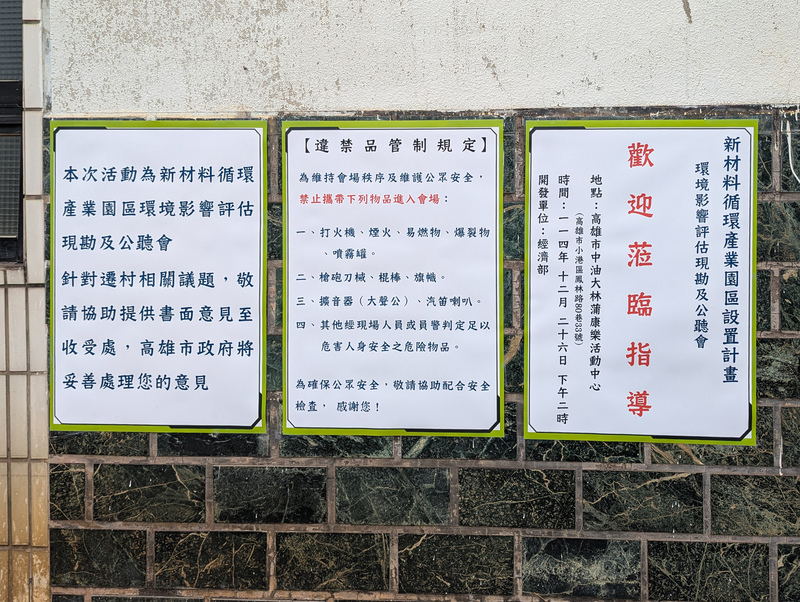 本次活動為新材料循環
產業園區環境影響評估
現勘及公聽會
針對遷村相關議題，敬
請協助提供書面意見至
收受處，高雄市政府將
妥善處理您的意見
【違禁品管制規定】
為維持會場秩序及維護公眾安全，
禁止攜帶下列物品進入會場：
一、打火機、煙火、易燃物、爆裂物
、噴霧罐。
二、槍砲刀械、棍棒、旗幟。
三、擴音器（大聲公）、汽笛喇叭。
四、其他經現場人員或員警判定足以
危害人身安全之危險物品。
為確保公眾安全，敬請協助配合安全
檢查， 感謝您！
新材料循環產業園區設置計畫
環境影響評估現勘及公聽會
歡迎蒞臨指導
地點：高雄市中油大林蒲康樂活動中心
（高雄市小港區鳳林路80巷33號）
時間：一一四年 十二月 二十六日 下午二時
開發單位：經濟部